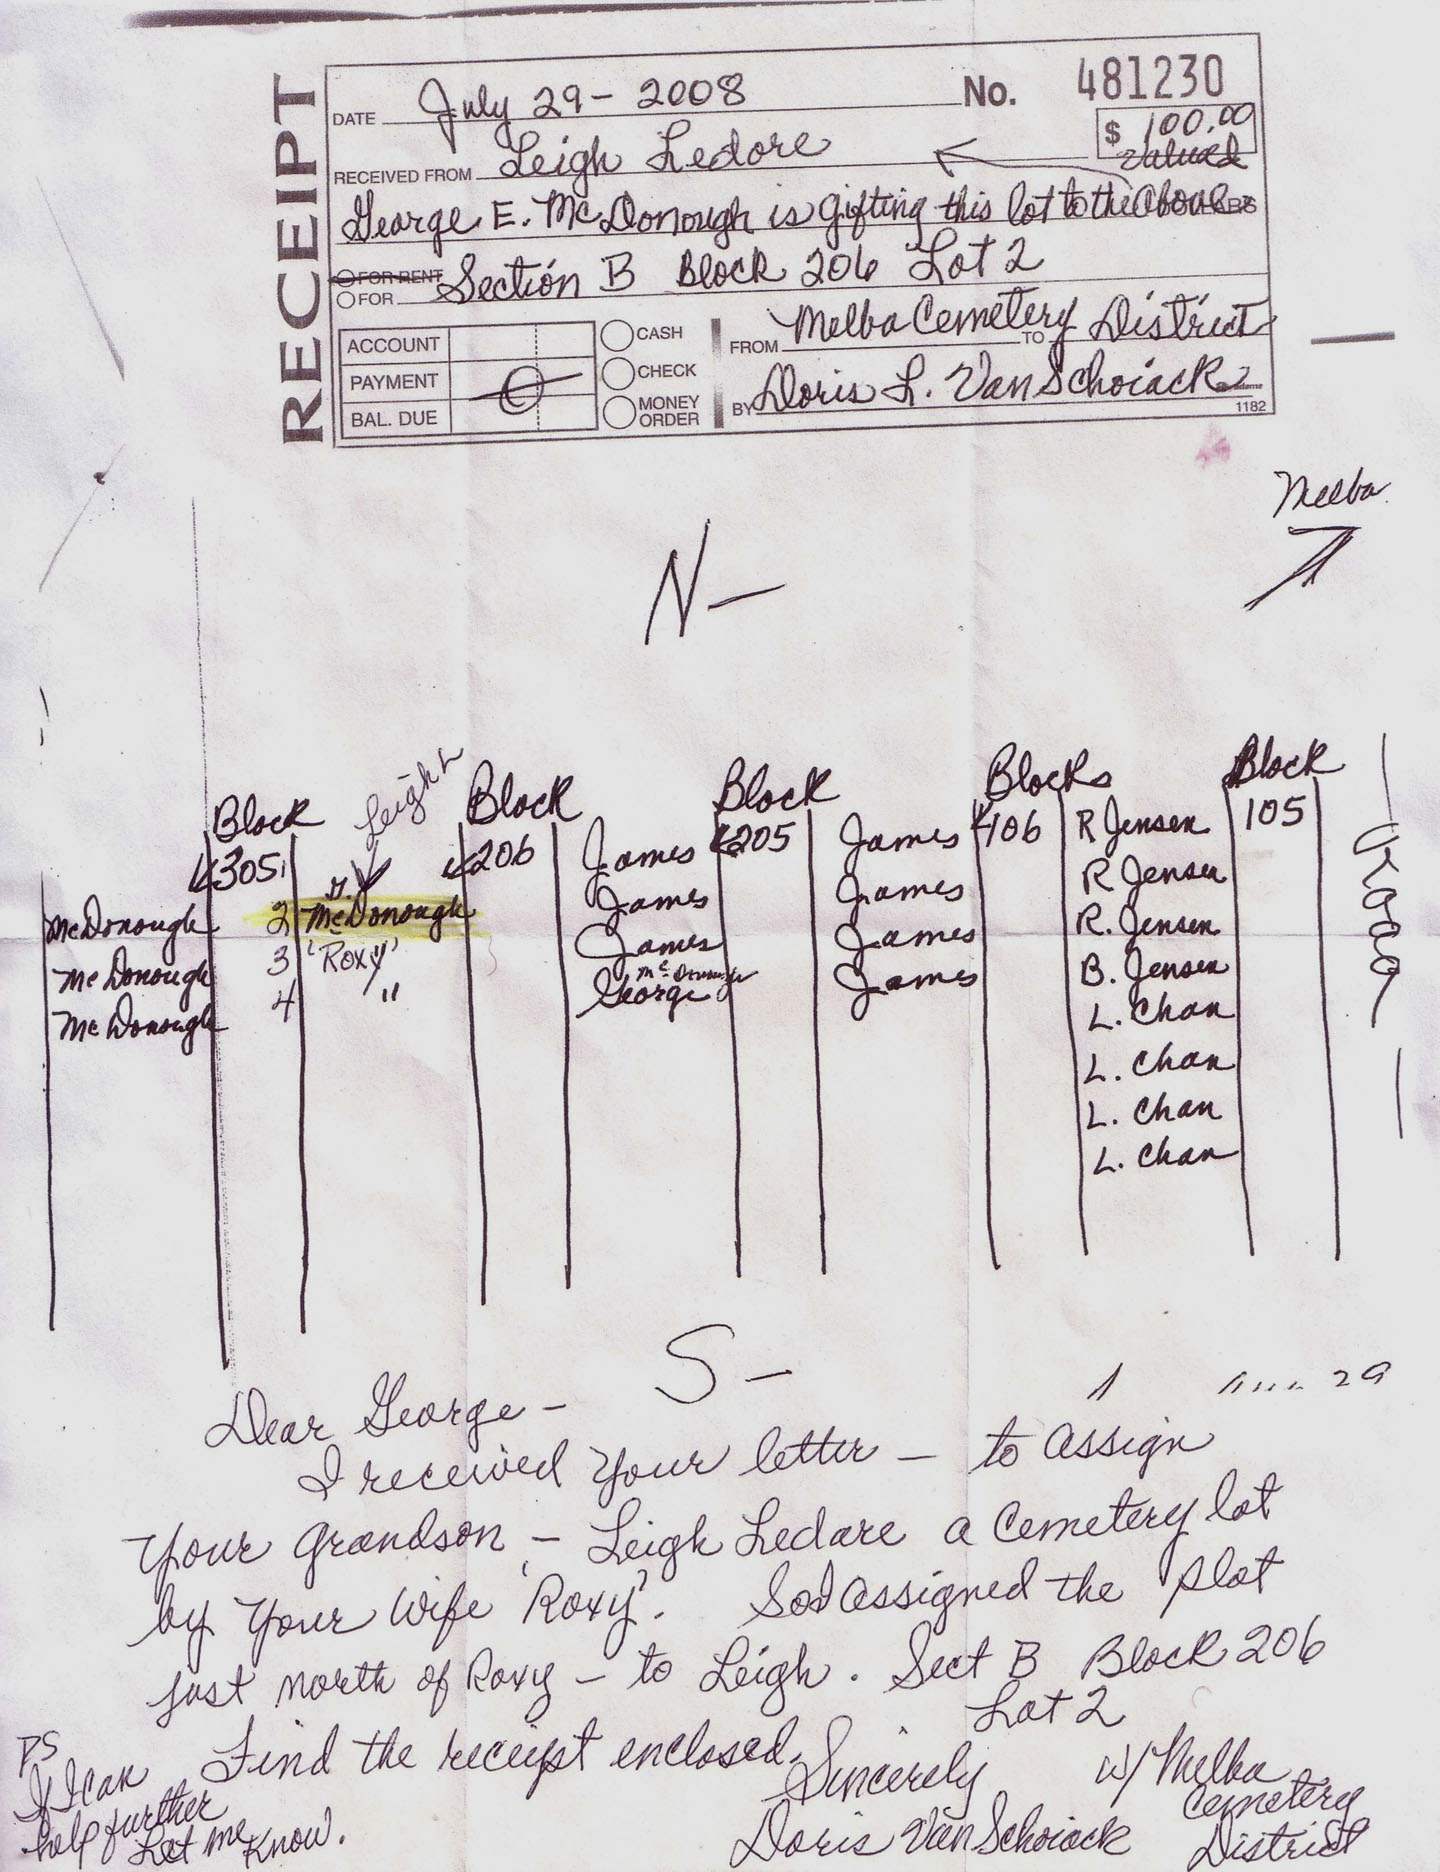 RECEIPT
DATE July 29 - 2008 No. 481230
$ 100.00
Valued
RECEIVED FROM Leigh Ledore
George E. McDonough is gifting this lot to the above
FOR RENT
FOR Section B Block 206 Lot 2
ACCOUNT
PAYMENT
BAL. DUE
CASH
CHECK
MONEY
ORDER
FROM Melba Cemetery District
TO
BY Doris L. VanSchoiack
1182
Melba
N-
Leigh L
Block Block Block Blocks Block
305 206 James 205 James 106 R Jensen 105
James James R Jensen
McDonough 2 G. McDonough James James R. Jensen
McDonough 3 'Roxy' George McDonough James B. Jensen
McDonough 4 " L. Chan
L. Chan
L. Chan
L. Chan
Road
S-
29
Dear George -
I received your letter - to assign
your grandson - Leigh Ledare a cemetery lot
by your wife 'Roxy'. So I assigned the plot
just north of Roxy - to Leigh. Sect B Block 206
Lot 2
Find the receipt enclosed.
Sincerely
Doris VanSchoiack
w/ Melba
Cemetery
District
PS
If I can
help further
Let me
know.